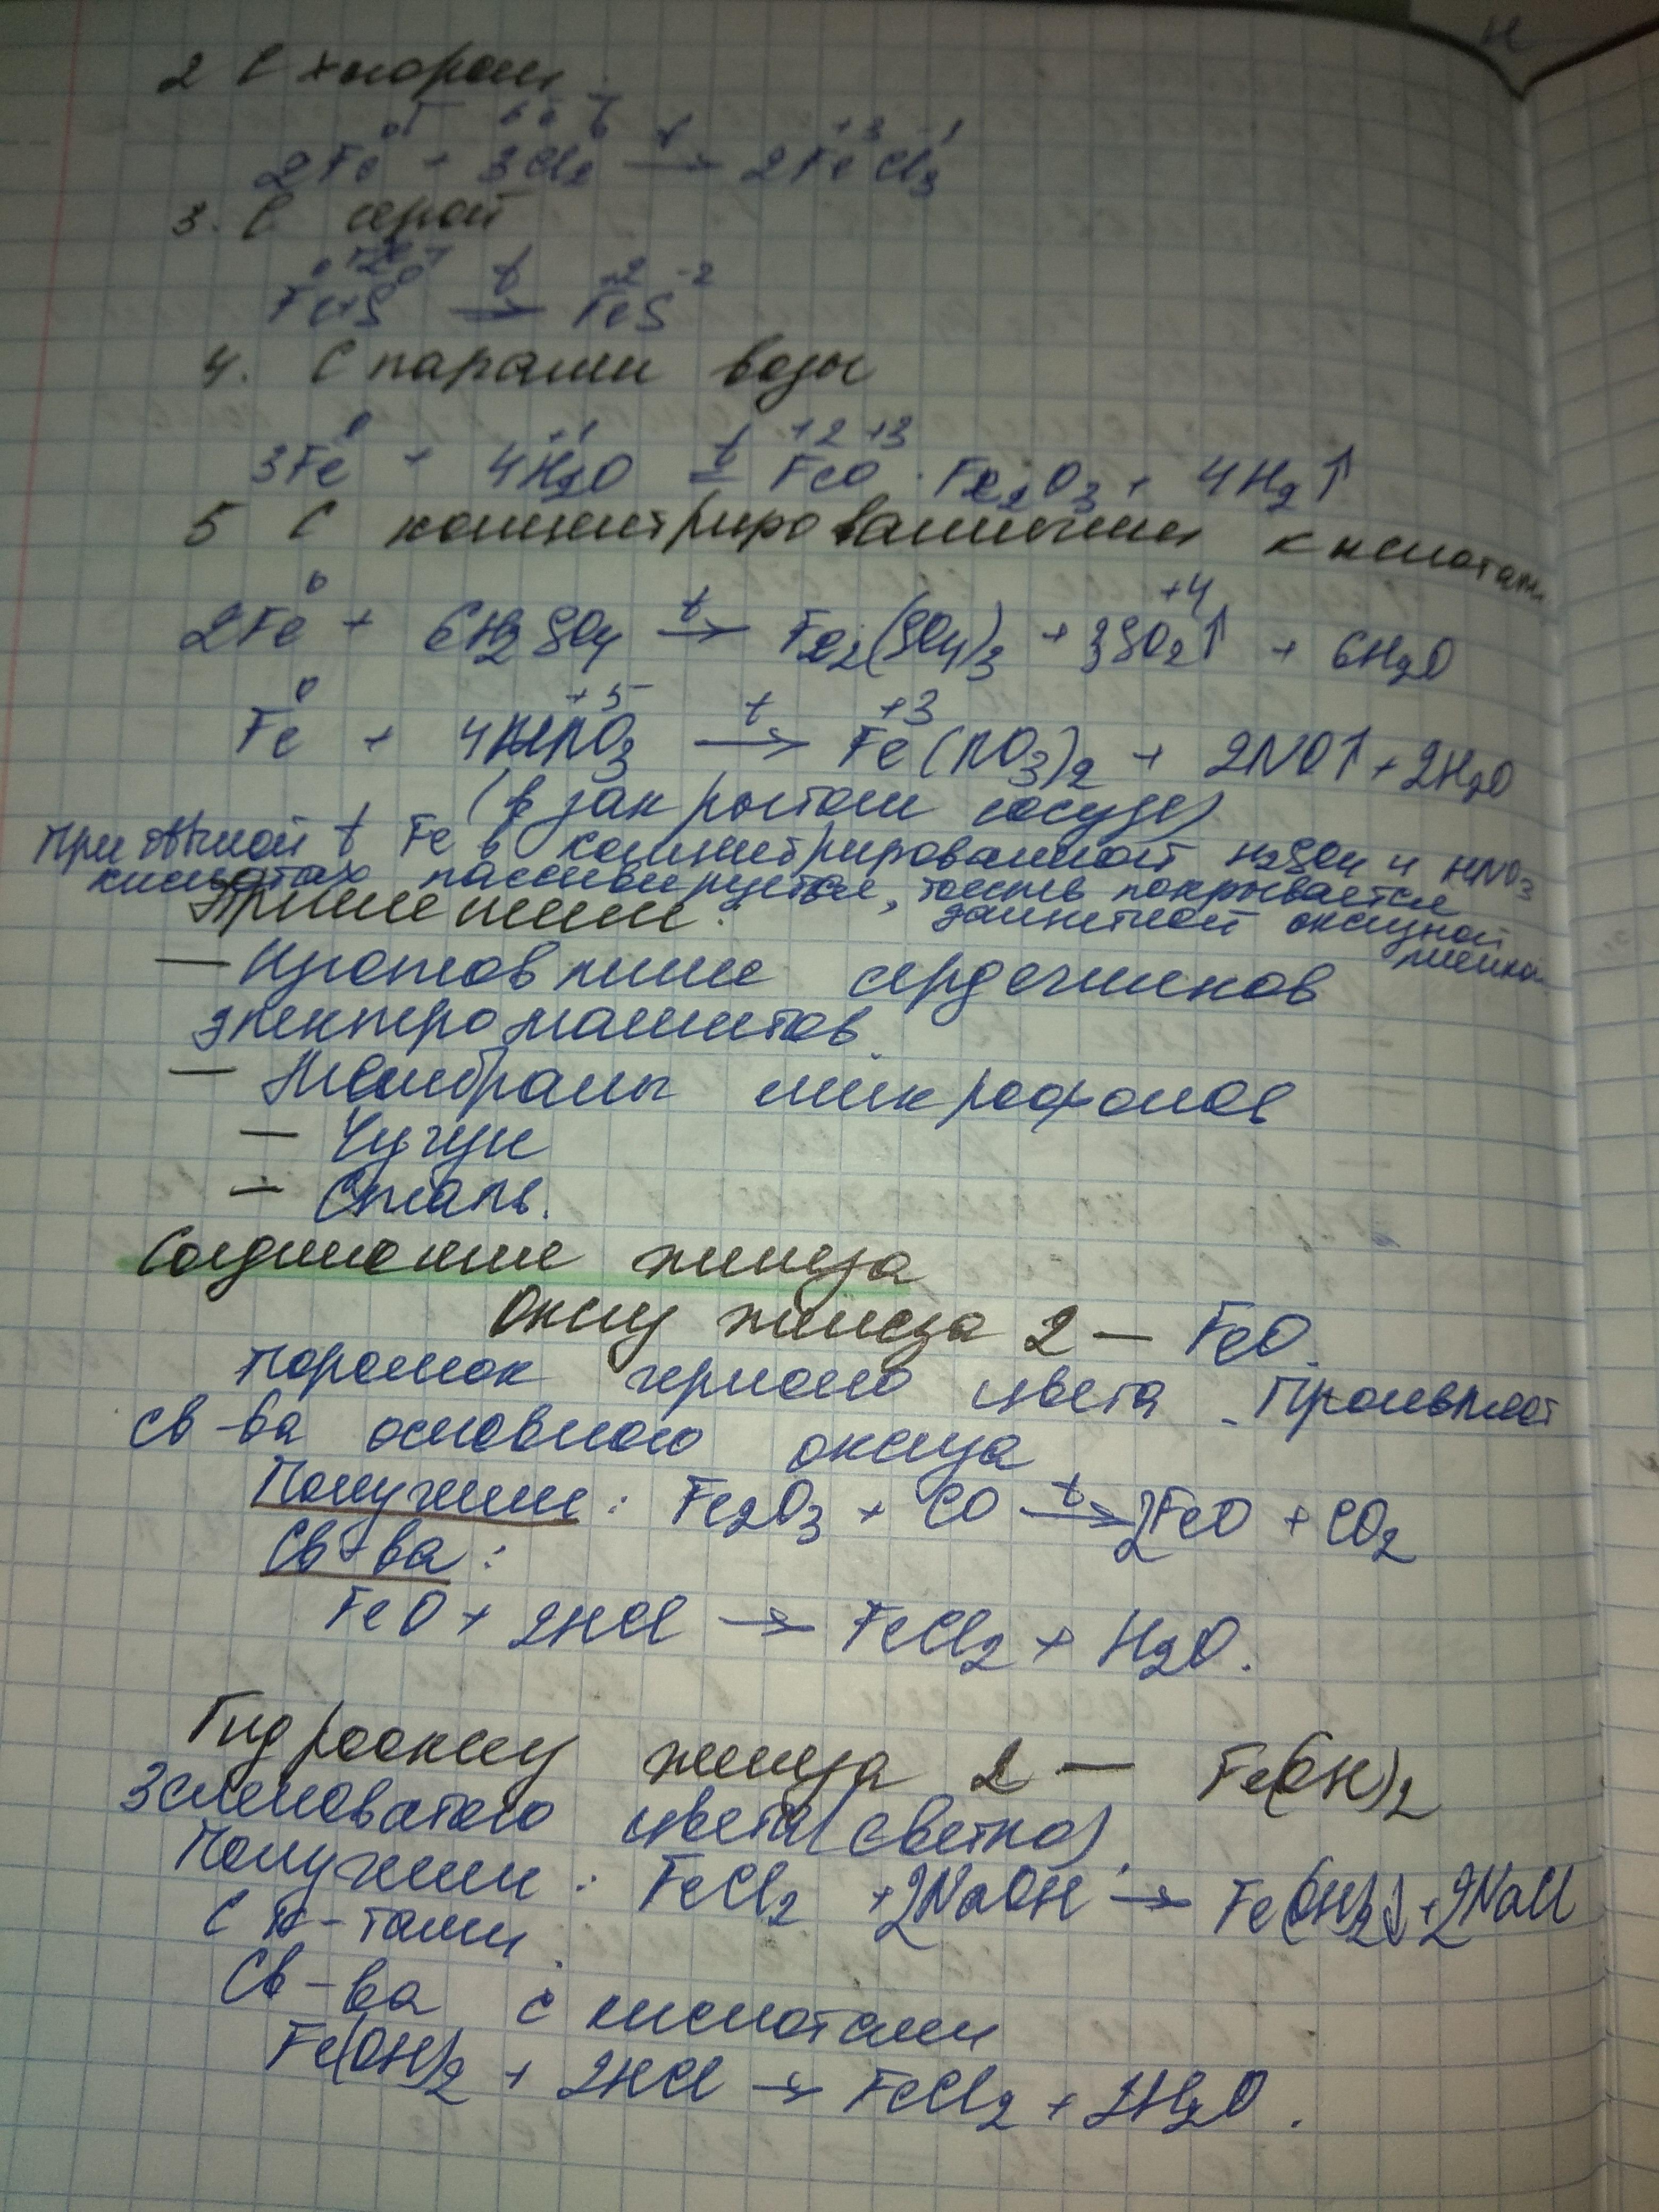 2 С хлором
2Fe⁰ + 3Cl₂⁰ t→ 2Fe⁺³Cl₃⁻¹
3. С серой
Fe⁰+S⁰ t→ Fe⁺²S⁻²
4. С парами воды
3Fe⁰ + 4H₂⁺¹O t= Fe⁺²O · Fe₂⁺³O₃ + 4H₂↑
5 С концентрированными кислотам
2Fe⁰ + 6H₂SO₄ t→ Fe₂(SO₄)₃ + 3S⁺⁴O₂↑ + 6H₂O
Fe⁰ + 4HN⁺⁵O₃ t→ Fe⁺³(NO₃)₂ + 2NO↑ + 2H₂O
(в закрытом сосуде)
При обычной t Fe в концентрированной H₂SO₄ и HNO₃
кислотах пассивируется, покрывается
защитной оксидной
пленкой
Применение:
— Изготовление сердечников
электромагнитов.
— Мембраны микрофонов
— Чугун
— Сталь.
Соединение железа
Оксид железа 2 — FeO.
Порошок черного цвета. Проявляет
св-ва основного оксида
Получение: Fe₂O₃ + CO t→ 2FeO + CO₂
Св-ва:
FeO + 2HCl → FeCl₂ + H₂O.
Гидроксид железа 2 — Fe(OH)₂
Зеленоватого цвета (светло)
Получение: FeCl₂ + 2NaOH → Fe(OH)₂↓ + 2NaCl
С к-тами.
Св-ва с кислотами
Fe(OH)₂ + 2HCl → FeCl₂ + 2H₂O.